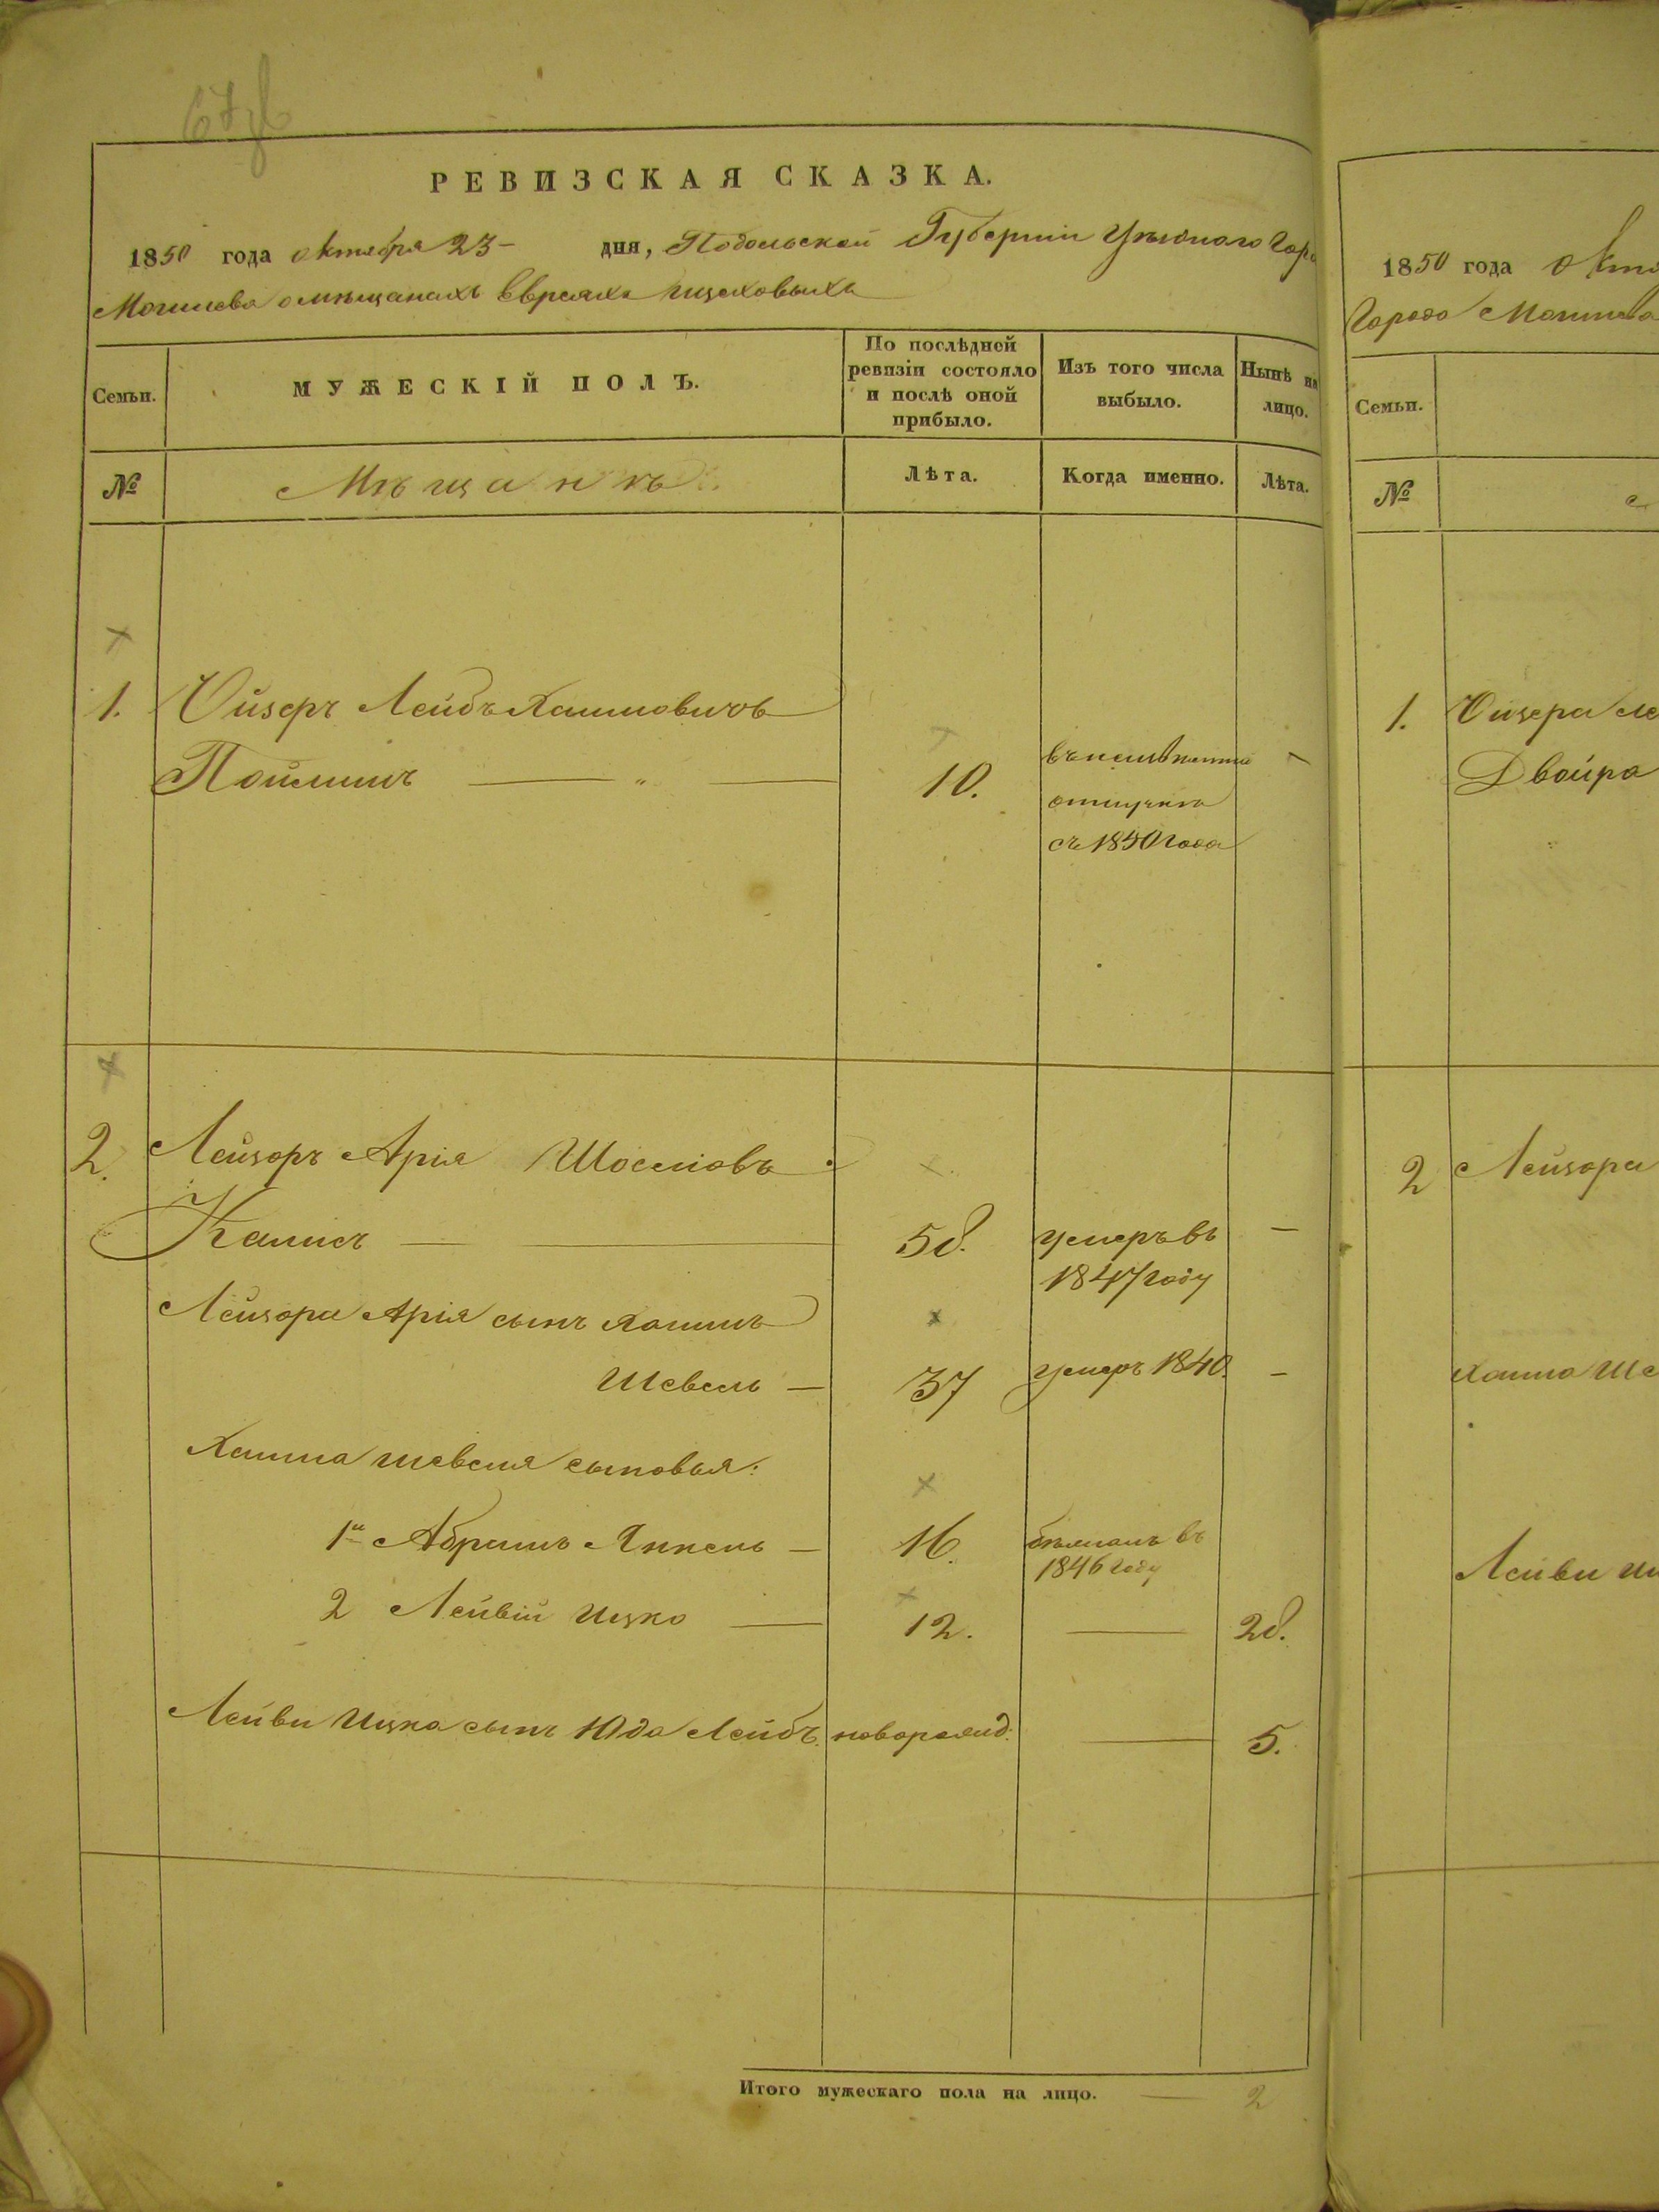 РЕВИЗСКАЯ СКАЗКА.
1850 года октября 23 - дня, Подольской Губерніи Уѣзднаго Горо
Могилева о мѣщанахъ Евреяхъ
Семьи.
МУЖЕСКІЙ ПОЛЪ.
По послѣдней ревизіи состояло и послѣ оной прибыло.
Изъ того числа выбыло.
Нынѣ на лицо.
№
Мѣщанъ
Лѣта.
Когда именно.
Лѣта.
1. Ойзеръ Лейбъ Хаимовичъ
10.
съ 1850 года
2. Лейзоръ Арія
58. умеръ въ
1847 году
Лейзора Арія сынъ Хаимъ
Шевель — 37 умеръ 1840. -
Хаима Шевеля сыновья:
1й Абрамъ Янкель — 16. въ
1846 году
2 Лейвій Ицко — 12. — 28.
Лейви Ицка сынъ Юда Лейбъ. новорожд. — 5.
Итого мужескаго пола на лицо. — 2
1850 года Октя
Города Могилева
Семьи.
№
1. Ойзера Ле
Двойра
2 Лейзора
Хаима Ше
Лейви Иц